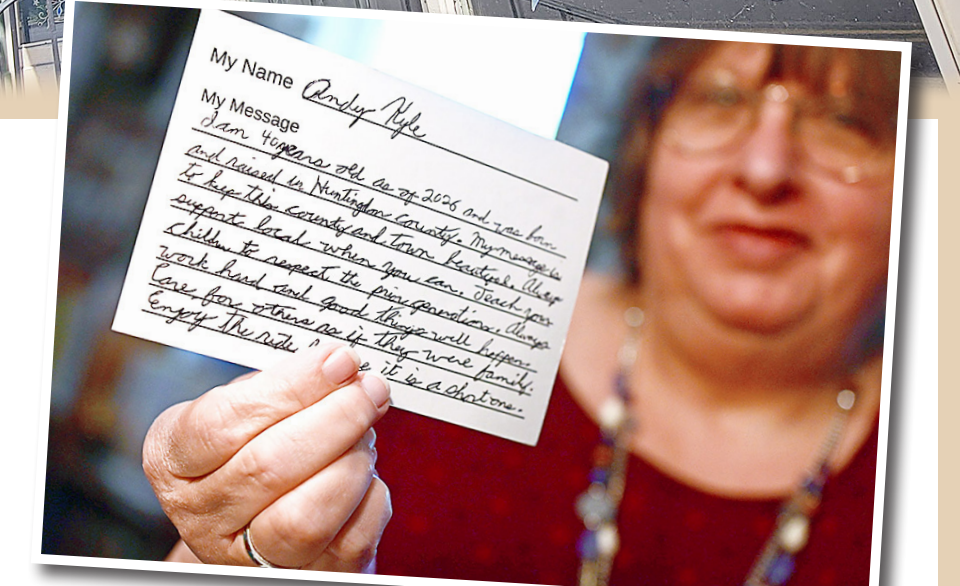 My Name Andy Kyle
My Message
I am 40 years old as of 2026 and was born
and raised in Huntingdon county. My message is
to keep this county and town beautiful. Always
support local when you can. Teach your
children to respect the prior generations. Always
work hard and good things will happen.
Care for others as if they were family.
Enjoy the ride it is a short one.